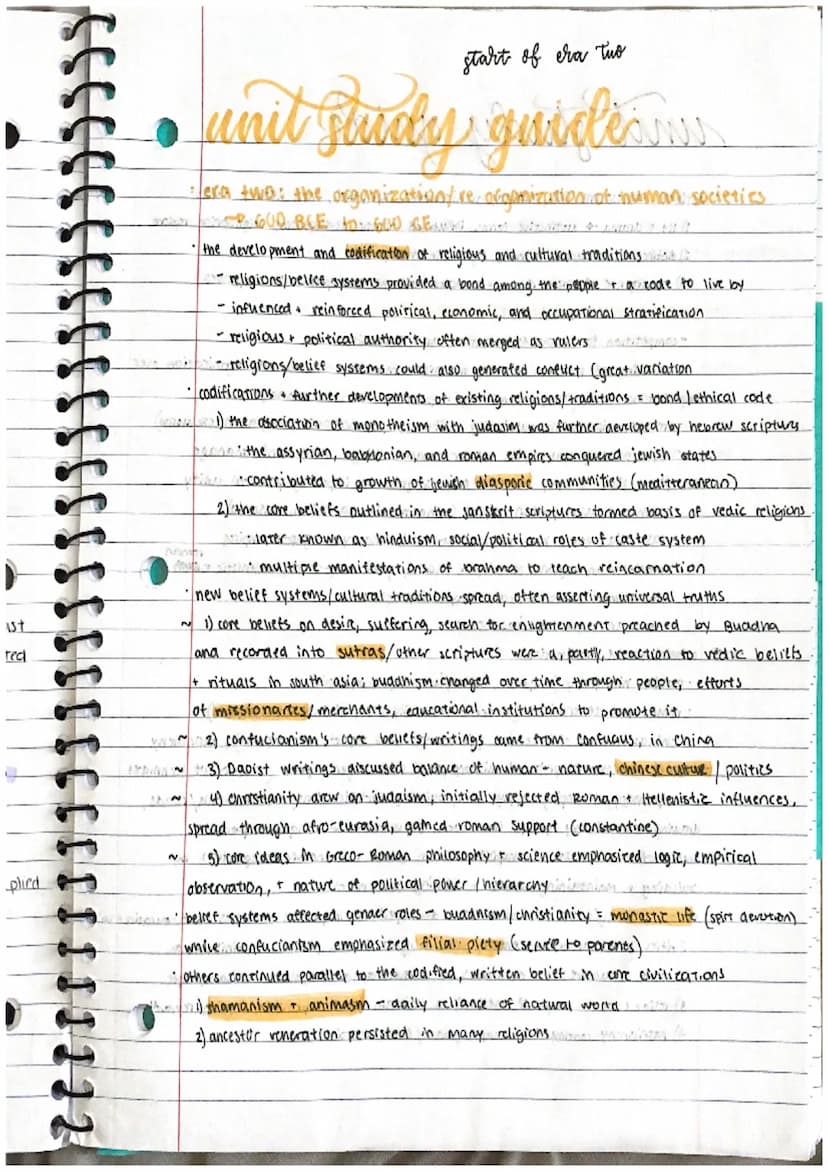 start of era two
unit study guide
· era two: the organization/re organization of human societies
→ 600 BCE to 600 CE
· the development and codification of religious and cultural traditions
- religions/belief systems provided a bond among the people + a code to live by
- influenced + reinforced political, economic, and occupational stratification
- religious + political authority often merged as rulers
- religions/belief systems could also generated conflict (great variation
· codifications + further developments of existing religions/traditions = bond/ethical code
1) the association of monotheism with judasim was further developed by hebrew scripture
: the assyrian, babylonian, and roman empires conquered jewish states
· contributed to growth of jewish diasporic communities (meditterranean)
2) the core beliefs outlined in the sanskrit scriptures formed basis of vedic religions
· later known as hinduism, social/political roles of caste system
· multiple manifestations of brahma to teach reincarnation
· new belief systems/cultural traditions spread, often asserting universal truths
~ 1) core beliefs on desire, suffering, search for enlightenment preached by Buddha
and recorded into sutras/other scriptures were a, partly, reaction to vedic beliefs
+ rituals in south asia; buddhism changed over time through people, efforts
of missionaries/merchants, educational institutions to promote it
~ 2) confucianism's core beliefs/writings came from confucus, in china
~ 3) Daoist writings discussed balance of human-nature, chinese culture/politics
~ 4) christianity drew on judaism, initially rejected Roman + Hellenistic influences,
spread through afro-eurasia, gained roman support (constantine)
~ 5) core ideas in Greco-Roman philosophy + science emphasized logic, empirical
observation, + nature of political power/hierarchy
· belief systems affected gender roles - buddhism/christianity = monastic life (spirt devotion)
while confucianism emphasized filial piety (serve to parents)
· others continued parallel to the codified, written belief in core civilizations
1) shamanism + animasm - daily reliance of natural world
2) ancestor veneration persisted in many religions
ist
red
plied